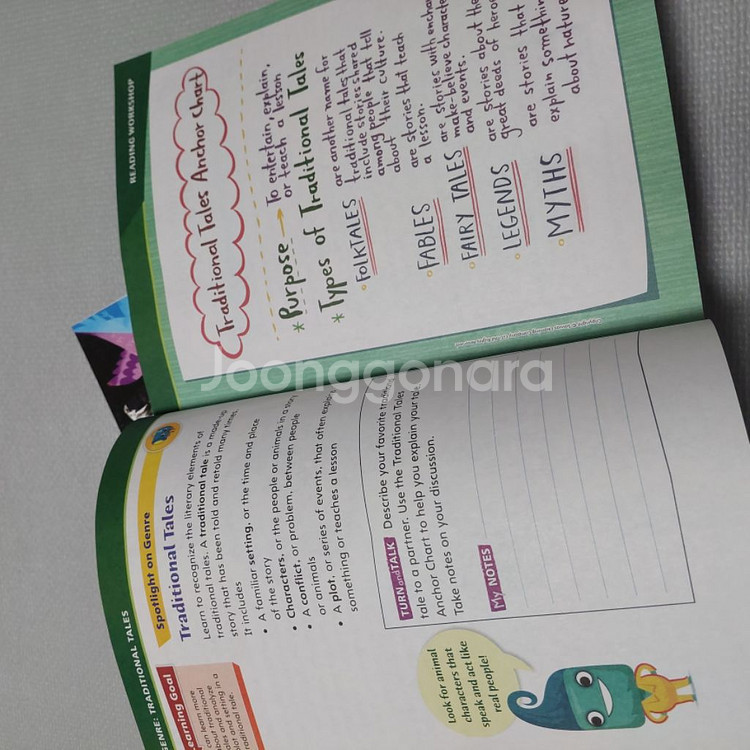 GENRE: TRADITIONAL TALES
Learning Goal
learn more
about traditional
can analyze
plot and setting in a
traditional tale.
Spotlight on Genre
Traditional Tales
Learn to recognize the literary elements of
traditional tales. A traditional tale is a made-up
story that has been told and retold many times.
It includes
• A familiar setting, or the time and place
of the story
• Characters, or the people or animals in a story
• A conflict, or problem, between people
or animals
• A plot, or series of events, that often
something or teaches a lesson
TURN and TALK Describe your favorite
tale to a partner. Use the Traditional Tales
Anchor Chart to help you explain your
Take notes on your discussion.
My NOTES
Look for animal
characters that
speak and act like
real people!
READING WORKSHOP
Traditional Tales Anchor Chart
* Purpose → To entertain, explain,
or teach a lesson
* Types of Traditional Tales
• FOLKTALES are another name for
traditional tales that
include stories shared
among people that tell
about their culture.
• FABLES are stories that teach
a lesson.
• FAIRY TALES are stories with
make-believe
and events.
• LEGENDS are stories about the
great deeds of
• MYTHS are stories that
explain
about nature
Joonggonara